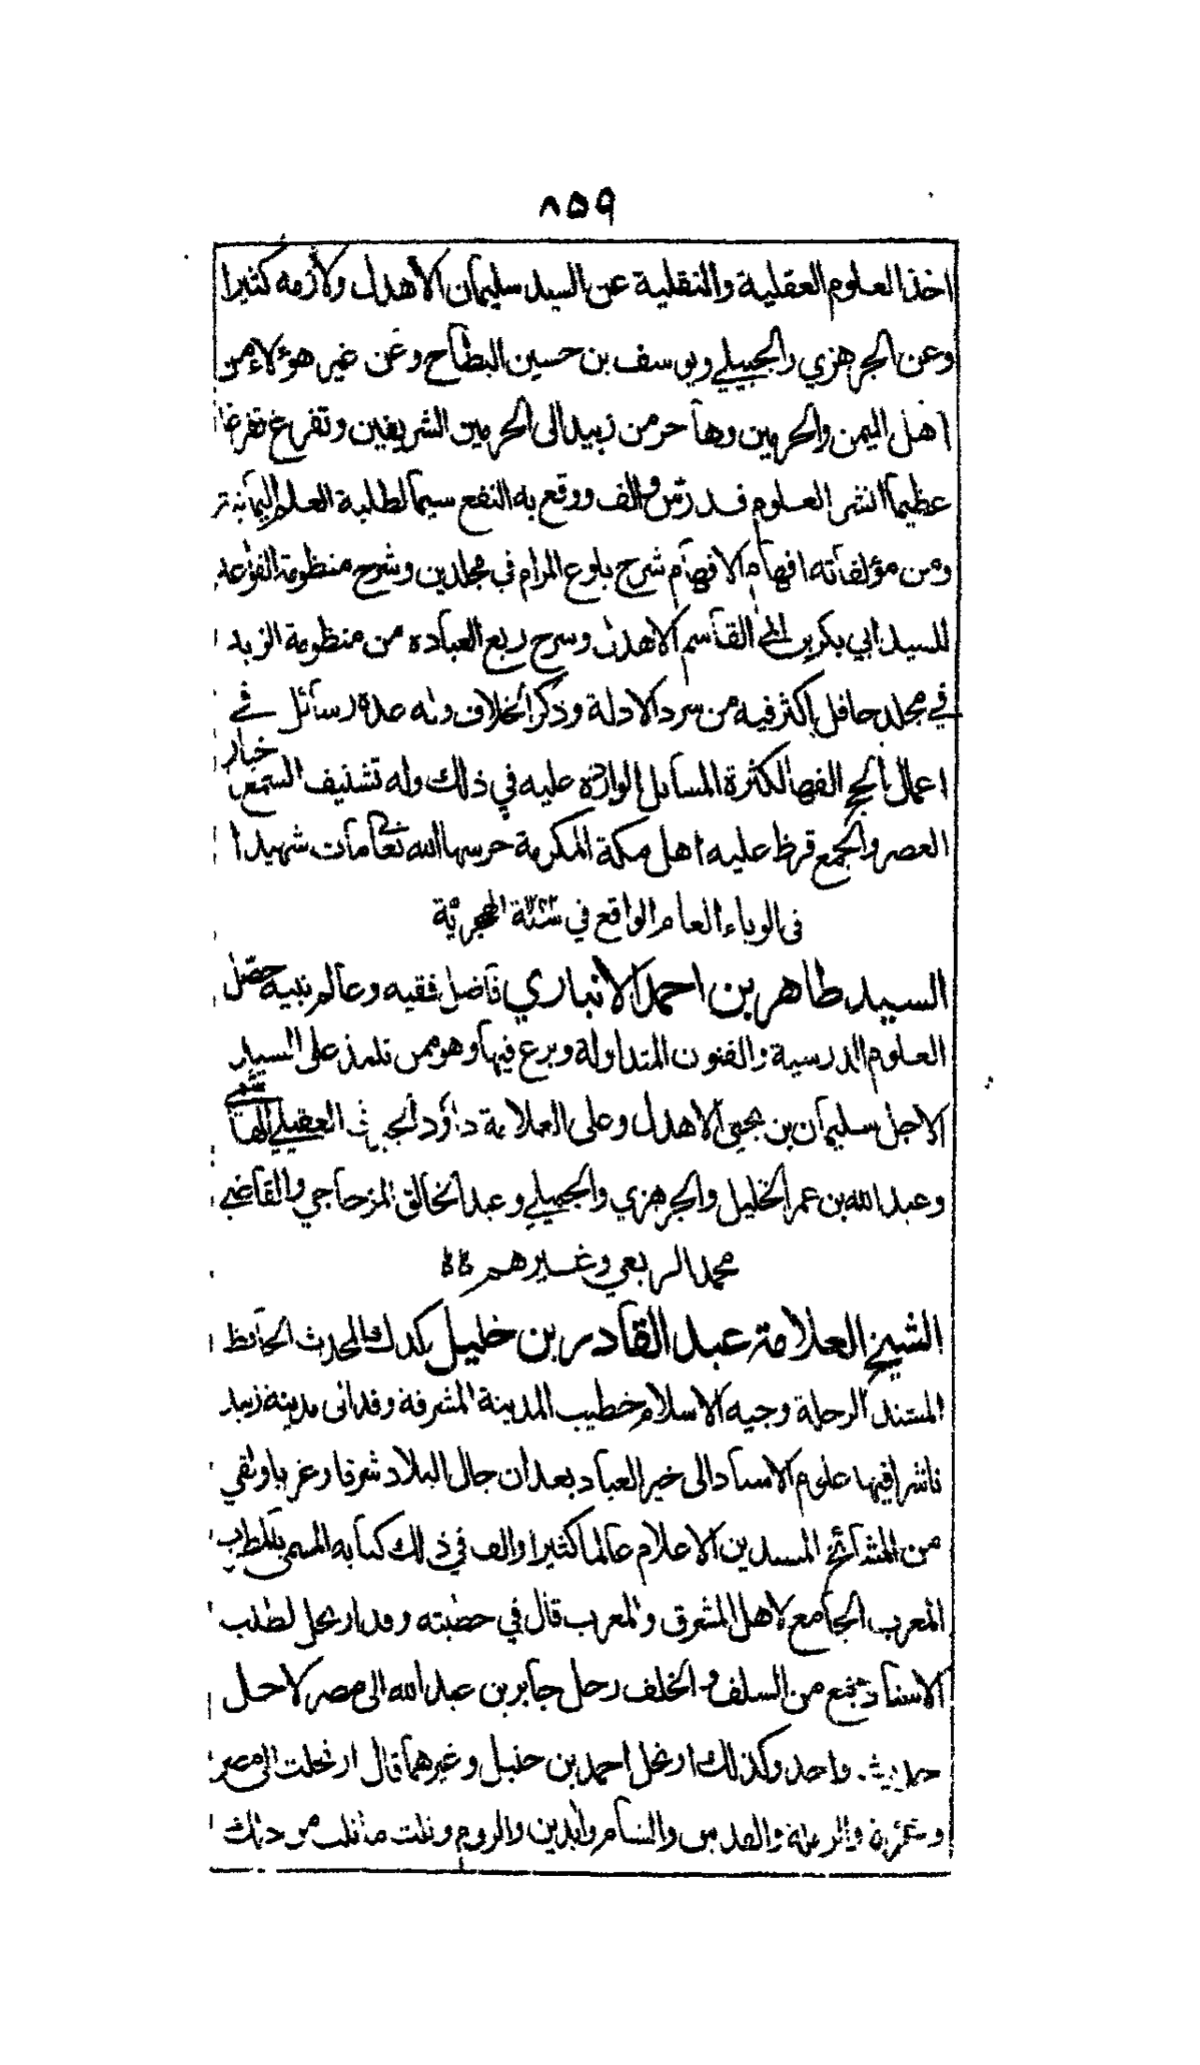 ٨٥٩
اخذ العلوم العقلية والنقلية عن السيد سليمان الأهدل ولازمه كثيرا
وعن الجرهزي والجبيلي ويوسف بن حسين البطاح وعن غير هؤلاء من
اهل اليمن والحرمين وهاجر من زبيد الى الحرمين الشريفين وتفرغ تفرغا
عظيما لنشر العلوم فدرّس والف ووقع به النفع سيما لطلبة العلم اليمانية
ومن مؤلفاته افهام الافهام شرح بلوغ المرام في مجلدين وشرح منظومة القواعد
للسيد ابي بكر بن ابي القاسم الاهدل وشرح ربع العباده من منظومة الزبد
في مجلد حافل اكثر فيه من سرد الادلة وذكر الخلاف وله عدة رسائل في
اعمال الحج الفها لكثرة المسائل الواردة عليه في ذلك وله تشنيف السمع باخبار
العصر والجمع قرظ عليه اهل مكة المكرمة حرسها الله تعالى مات شهيدا
في الوباء العام الواقع في سنة الهجريّة
السيد طاهر بن احمد الانباري فاضل فقيه وعالم نبيه حصّل
العلوم الدرسية والفنون المتداولة وبرع فيها وهو ممن تلمذ على السيد
الاجل سليمان بن يحيى الاهدل وعلى العلامة داؤد العقيلي الهاشمي
وعبد الله بن عمر الخليل والجرهزي والجبيلي وعبد الخالق المزجاجي والقاضي
محمد الربعي وغيرهم
الشيخ العلامة عبد القادر بن خليل كدك المحدث الحافظ
المسند الرحلة وجيه الاسلام خطيب المدينة المشرفة وفد الى مدينة زبيد
ناشرا فيها علوم الاسناد الى خير العباد بعد ان جال البلاد شرقا وغربا ولقي
من المشائخ المسندين الاعلام عالما كثيرا والف في ذلك كتابه المسمى بالمطرب
المعرب الجامع لاهل المشرق والمغرب قال في خطبته وقد ارتحل لطلب
الاسناد جمع من السلف والخلف رحل جابر بن عبد الله الى مصر لاجل
حديث واحد وكذلك ارتحل احمد بن حنبل وغيرهما قال ارتحلت الى مصر
وغزة والرملة والقدس والشام والروم ونلت ما نلت من ذلك